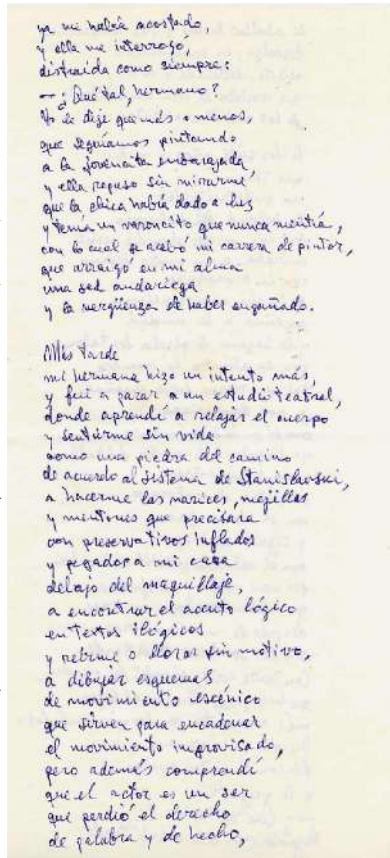 ya me había acostado,
y ella me interrogó,
distraída como siempre:
— ¿Qué tal, hermano?
Yo le dije que más o menos,
que seguíamos pintando
a la jovencita embarazada
y ella repuso sin mirarme
que la chica había dado a luz
y tenía un varoncito que nunca mentía,
con lo cual se acabó mi carrera de pintor,
que arraigó en mi alma
una sed andariega
y la vergüenza de haber engañado.
Más tarde
mi hermana hizo un intento más,
y fui a parar a un estudio teatral,
donde aprendí a relajar el cuerpo
y sentirme sin vida
como una piedra del camino
de acuerdo al sistema de Stanislavski,
a hacerme las narices, mejillas
y mentones que precisara
con preservativos inflados
y pegados a mi cara
debajo del maquillaje,
a encontrar el acento lógico
en textos ilógicos
y reírme o llorar sin motivo,
a dibujar esquemas
de movimiento escénico
que sirven para encadenar
el movimiento improvisado,
pero además comprendí
que el actor es un ser
que perdió el derecho
de palabra y de hecho,